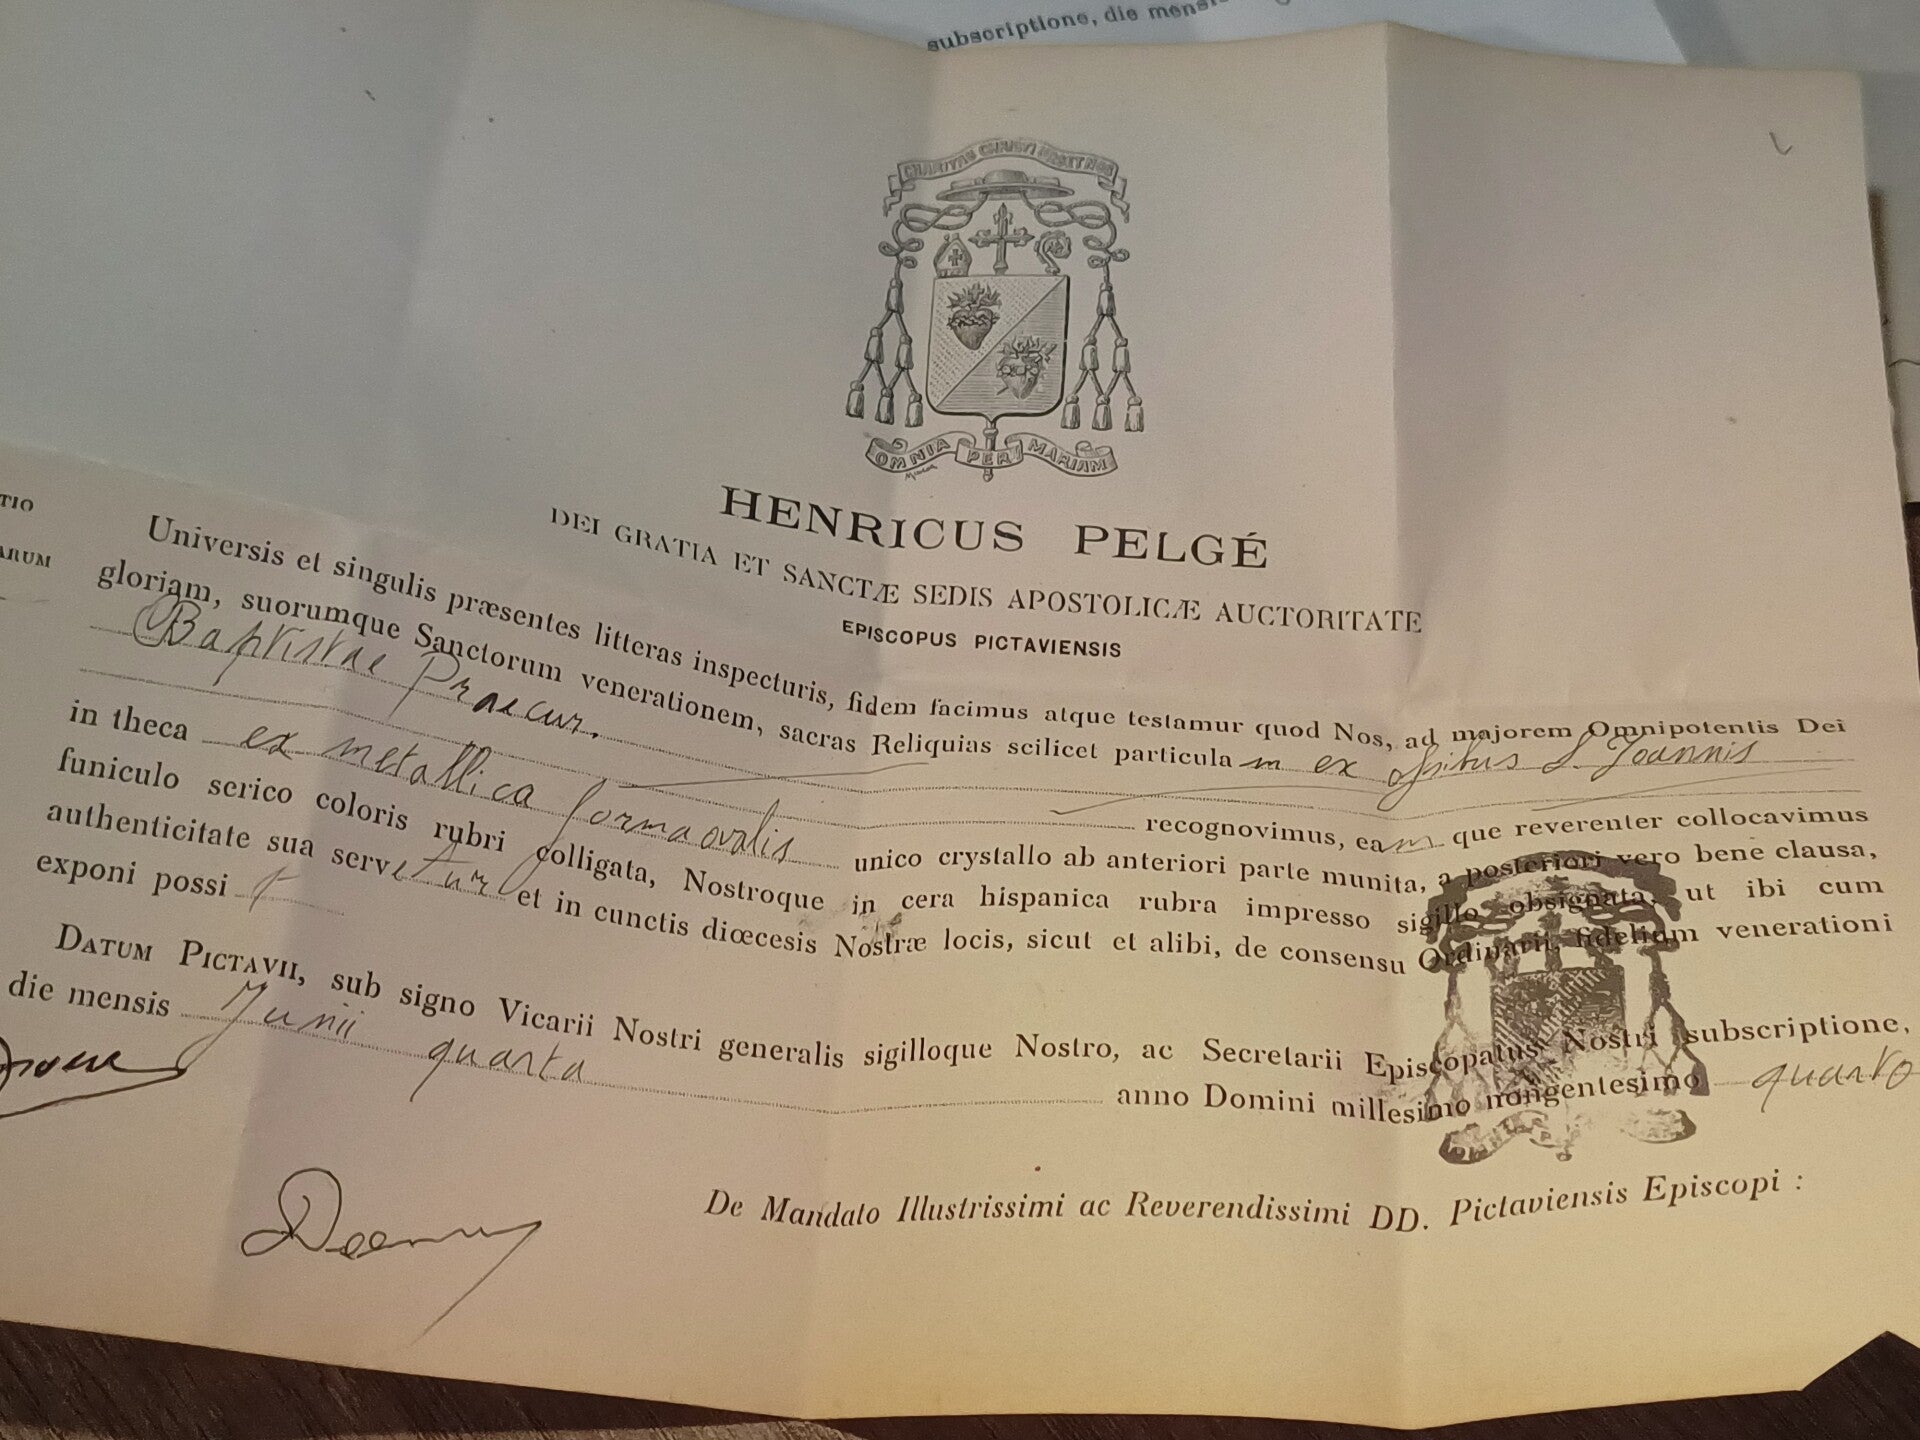 subscriptione, die mensis
CHARITAS CHRISTI URGET NOS
OMNIA PER MARIAM
HENRICUS PELGÉ
DEI GRATIA ET SANCTÆ SEDIS APOSTOLICÆ AUCTORITATE
EPISCOPUS PICTAVIENSIS
TIO
ARUM
Universis et singulis præsentes litteras inspecturis, fidem facimus atque testamur quod Nos, ad majorem Omnipotentis Dei
gloriam, suorumque Sanctorum venerationem, sacras Reliquias scilicet particulam ex ossibus S. Joannis
Baptistae Praecur.
recognovimus, eamque reverenter collocavimus
in theca ex metallica forma ovalis unico crystallo ab anteriori parte munita, a posteriori vero bene clausa,
funiculo serico coloris rubri colligata, Nostroque in cera hispanica rubra impresso sigillo obsignata, ut ibi cum
authenticitate sua servetur et in cunctis diœcesis Nostræ locis, sicut et alibi, de consensu Ordinarii, fidelium venerationi
exponi possit
DATUM PICTAVII, sub signo Vicarii Nostri generalis sigilloque Nostro, ac Secretarii Episcopatus Nostri subscriptione,
die mensis Junii quarta anno Domini millesimo nongentesimo quarto
De Mandato Illustrissimi ac Reverendissimi DD. Pictaviensis Episcopi :